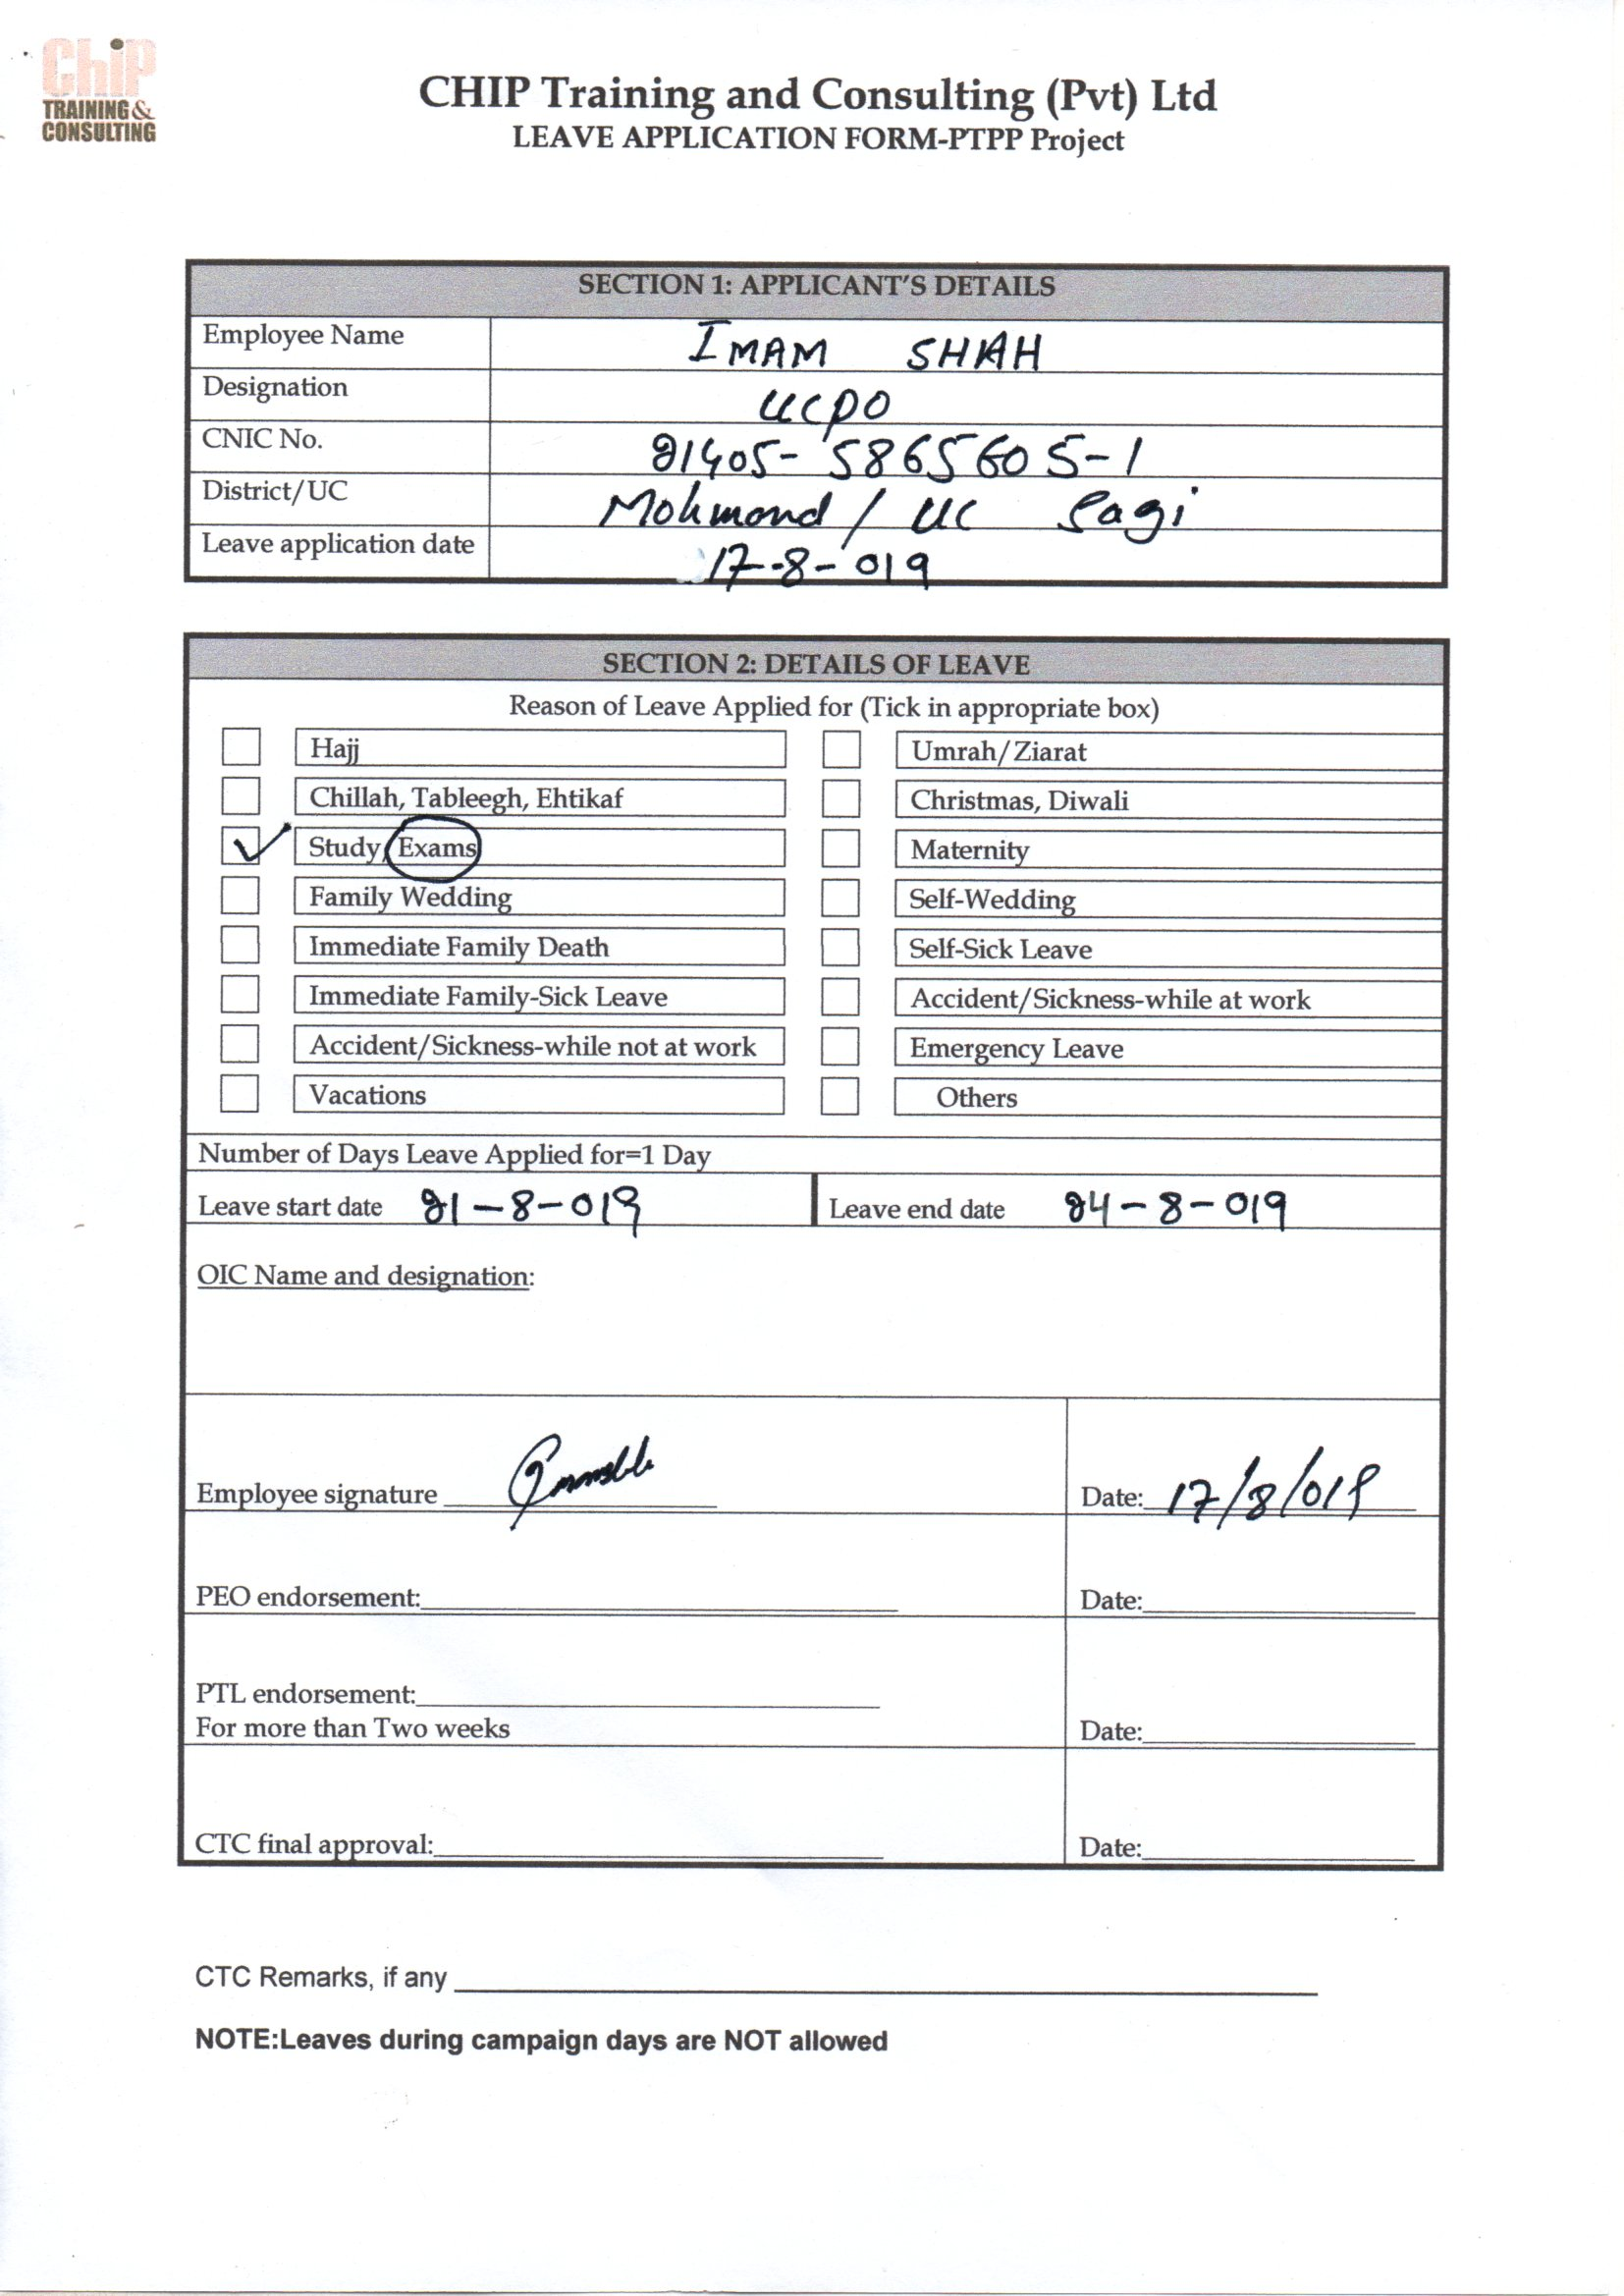 ChiP
TRAINING &
CONSULTING
CHIP Training and Consulting (Pvt) Ltd
LEAVE APPLICATION FORM-PTPP Project
SECTION 1: APPLICANT'S DETAILS
Employee Name IMAM SHAH
Designation UCPO
CNIC No. 21405-5865605-1
District/UC Mohmand / UC Sagi
Leave application date 17-8-019
SECTION 2: DETAILS OF LEAVE
Reason of Leave Applied for (Tick in appropriate box)
Hajj Umrah/Ziarat
Chillah, Tableegh, Ehtikaf Christmas, Diwali
Study/Exams Maternity
Family Wedding Self-Wedding
Immediate Family Death Self-Sick Leave
Immediate Family-Sick Leave Accident/Sickness-while at work
Accident/Sickness-while not at work Emergency Leave
Vacations Others
Number of Days Leave Applied for=1 Day
Leave start date 21-8-019 Leave end date 24-8-019
OIC Name and designation:
Employee signature Date: 17/8/019
PEO endorsement: Date:
PTL endorsement:
For more than Two weeks Date:
CTC final approval: Date:
CTC Remarks, if any
NOTE:Leaves during campaign days are NOT allowed